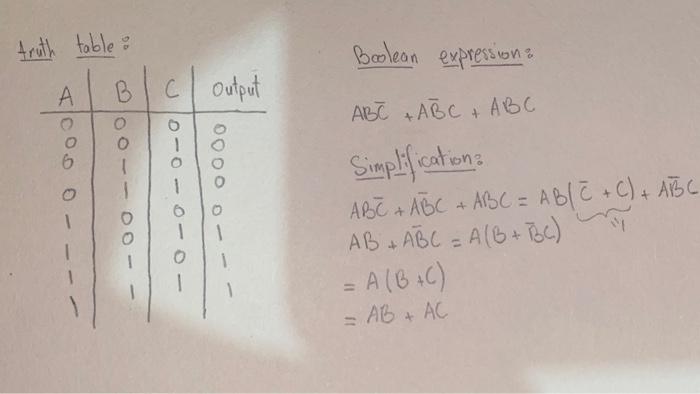 truth table:
A B C Output
0 0 0 0
0 0 1 0
0 1 0 0
0 1 1 0
1 0 0 0
1 0 1 1
1 1 0 1
1 1 1 1
Boolean expression:
ABC̅ + AB̅C + ABC
Simplification:
ABC̅ + AB̅C + ABC = AB(C̅ + C) + AB̅C
"1
AB + AB̅C = A(B + B̅C)
= A(B + C)
= AB + AC